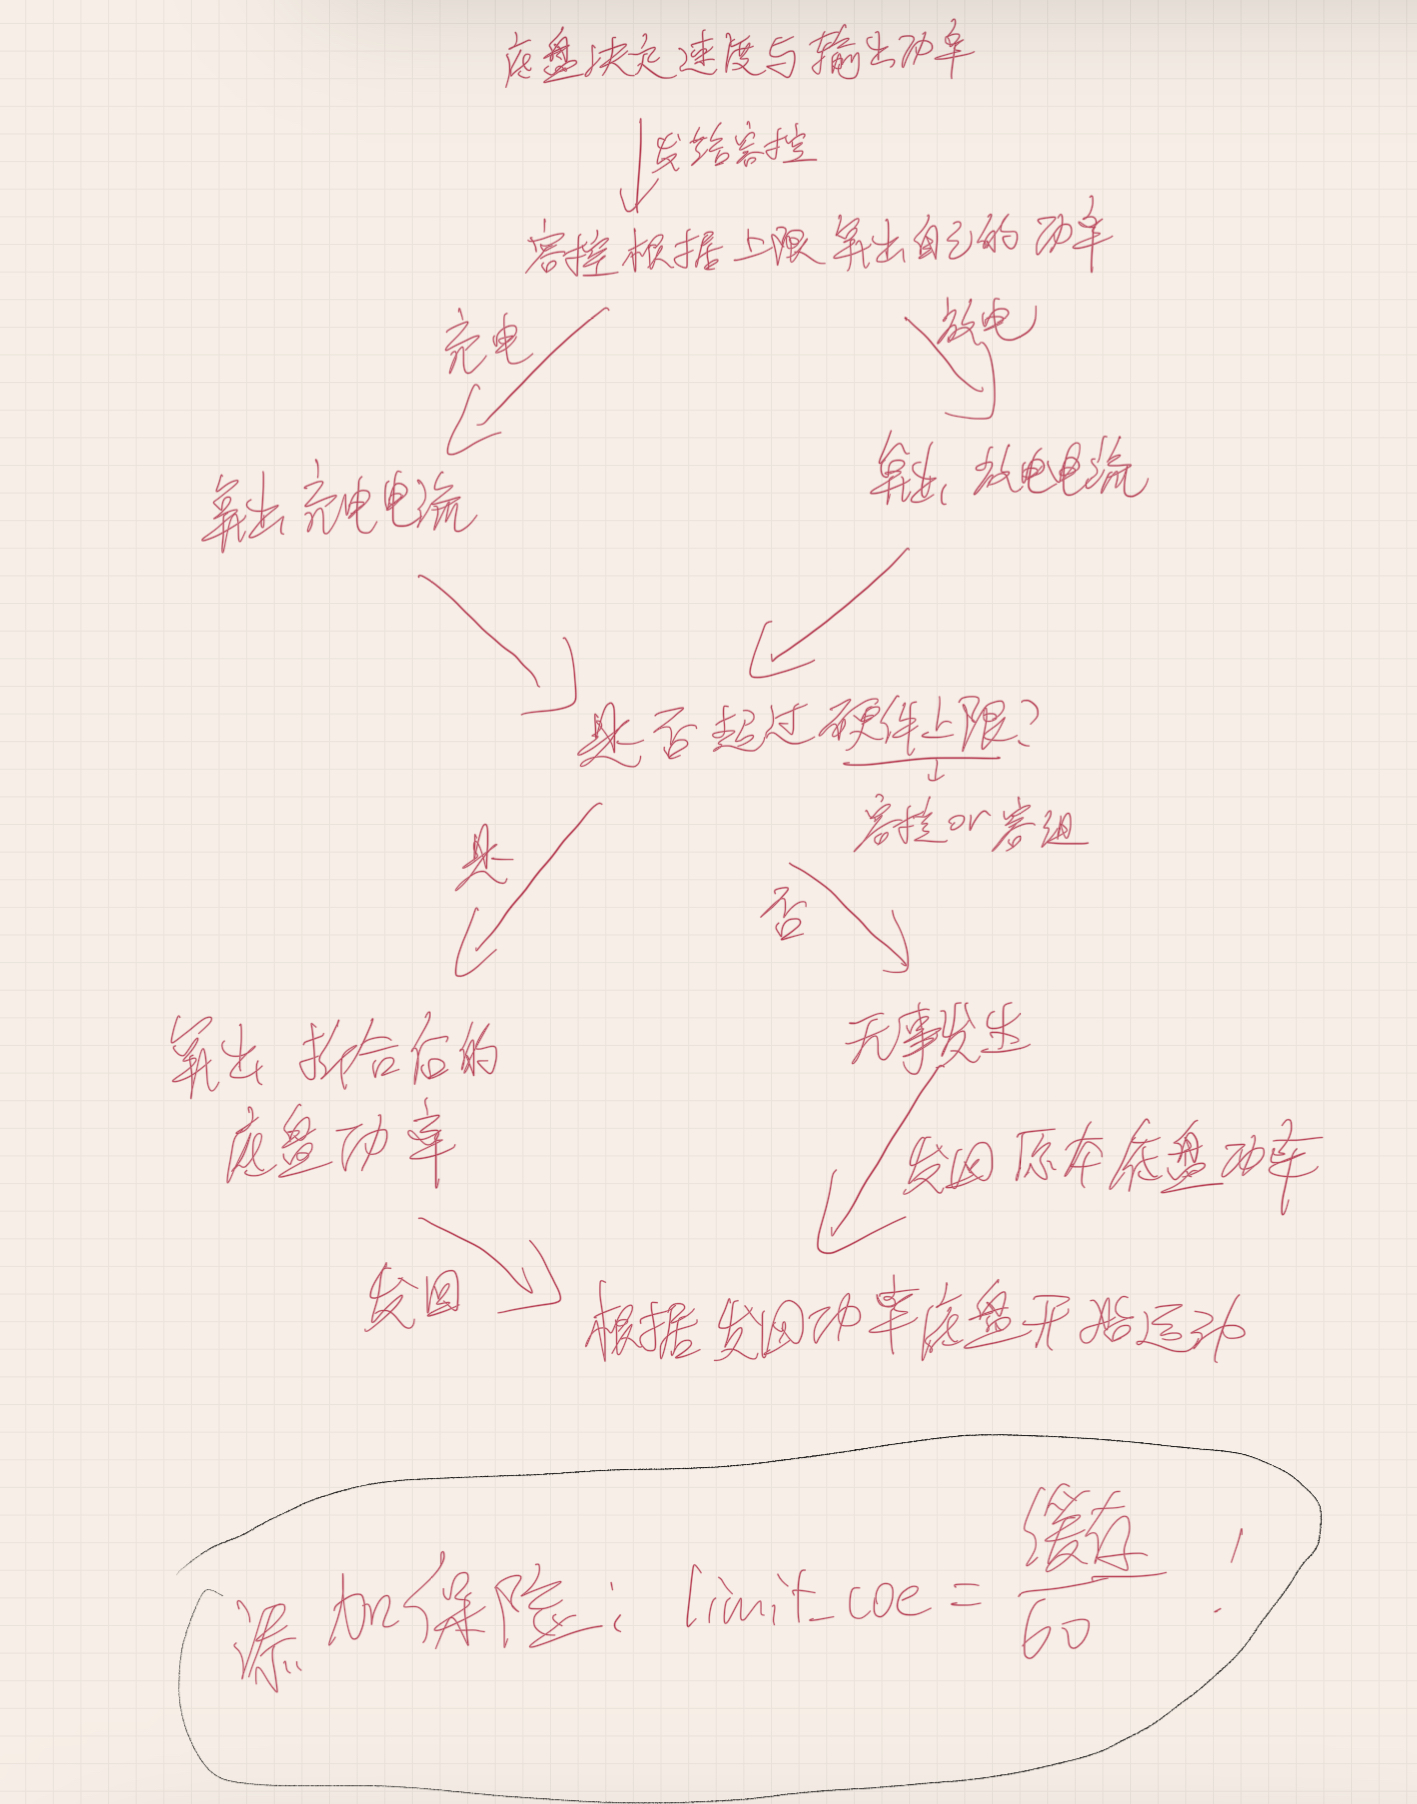 底盘决定速度与输出功率
发给容控
容控根据上限算出自己的功率
充电
放电
算出充电电流
算出放电电流
是否超过硬件上限?
容控or容组
是
否
算出拟合后的
底盘功率
无事发生
发回原本底盘功率
发回
根据发回功率底盘开始运动
添加保险: limit_coe = 缓存/60 !